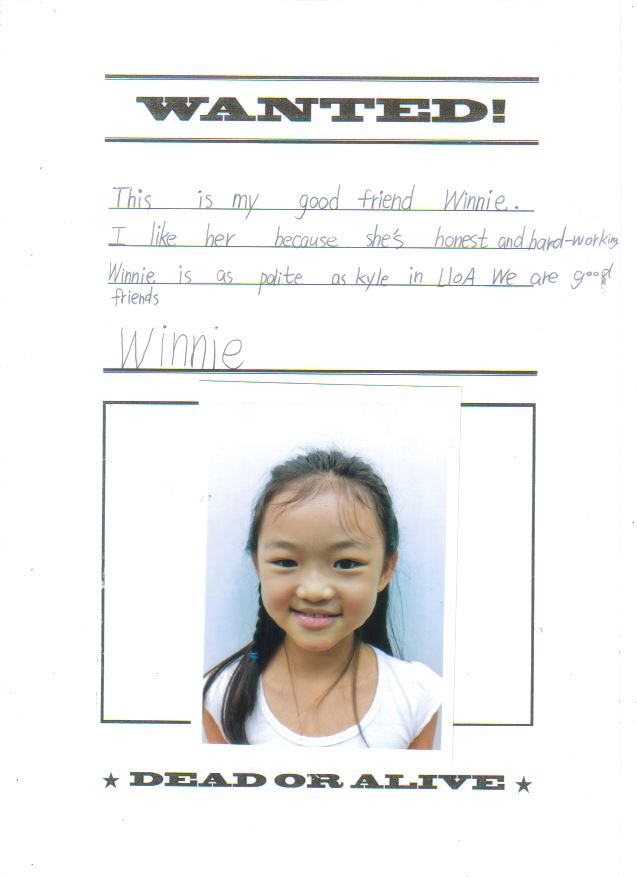 WANTED!
This is my good friend Winnie.
I like her because she's honest and hard-working
Winnie is as polite as kyle in L10A We are good
friends
Winnie
DEAD OR ALIVE